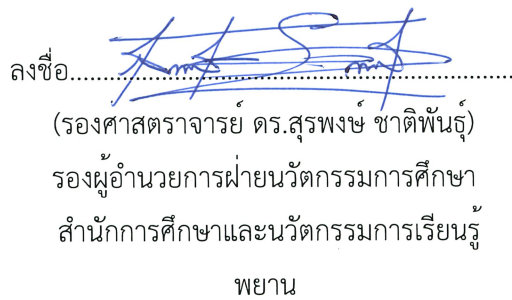 ลงชื่อ
(รองศาสตราจารย์ ดร.สุรพงษ์ ชาติพันธุ์)
รองผู้อำนวยการฝ่ายนวัตกรรมการศึกษา
สำนักการศึกษาและนวัตกรรมการเรียนรู้
พยาน